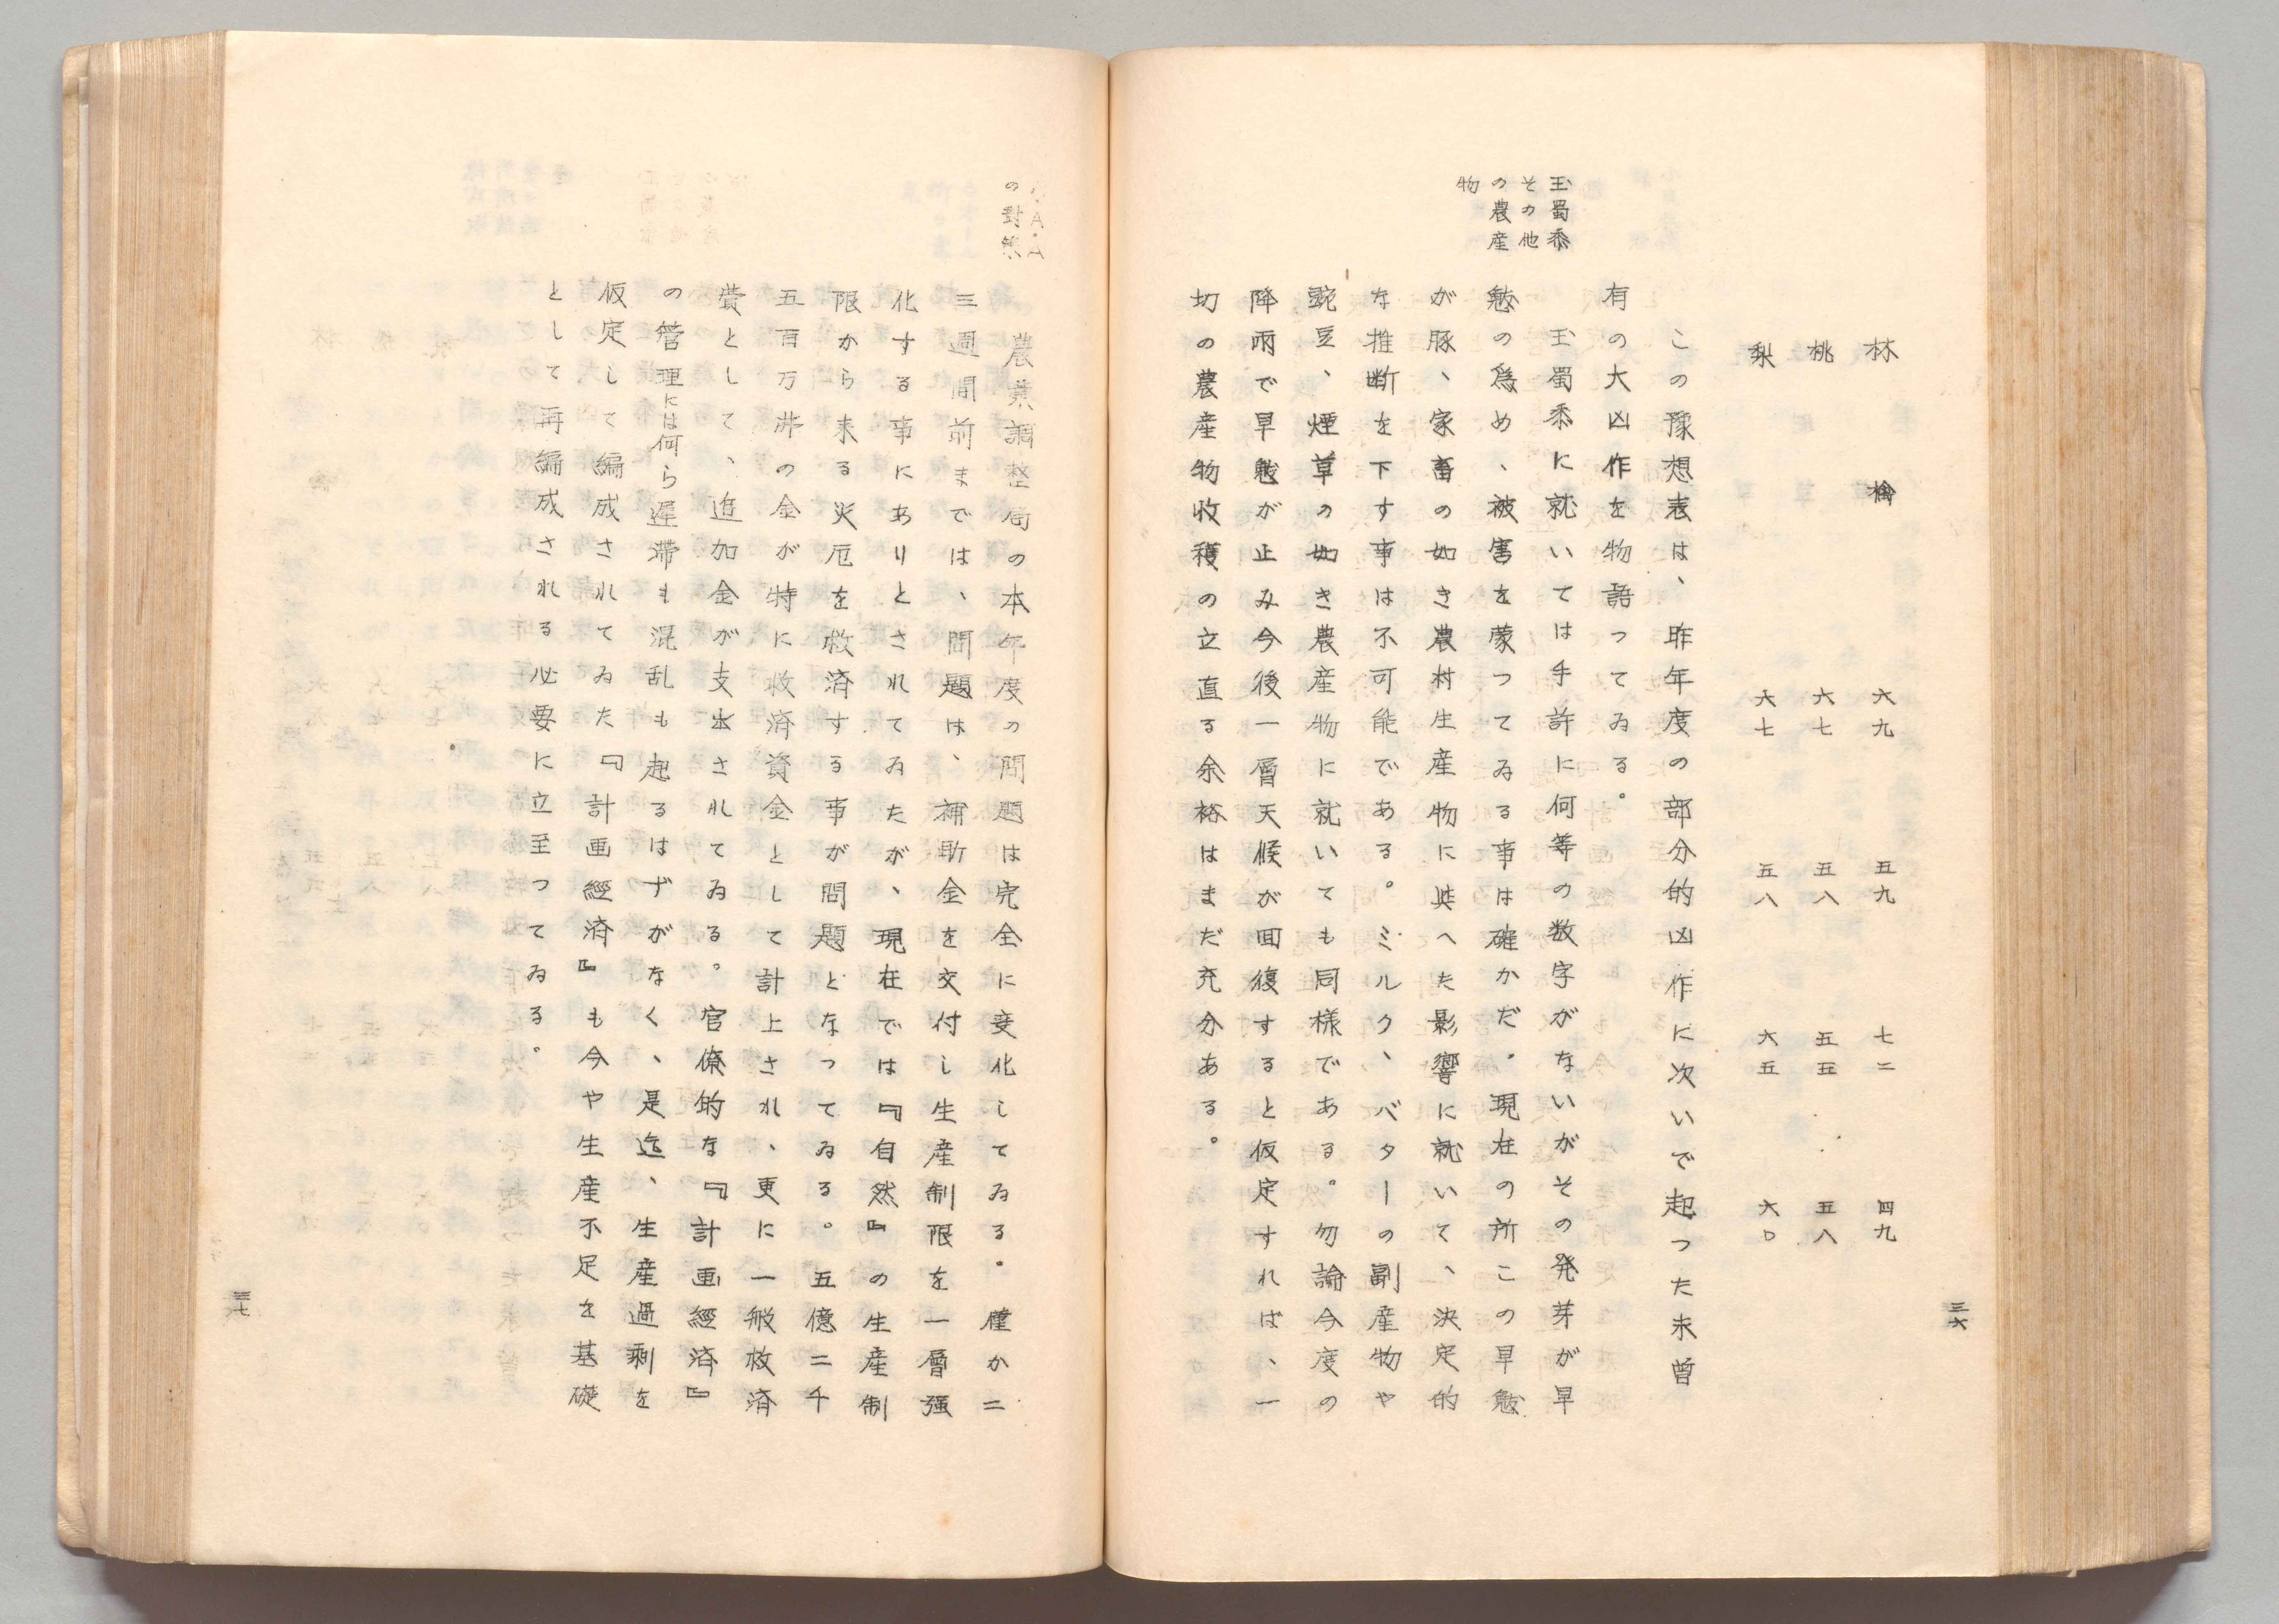 林檎 六九 五九 七二 四九
桃 六七 五八 五五 五八
梨 六七 五八 六五 六〇
この豫想表は、昨年度の部分的凶作に次いで起った未曾
有の大凶作を物語ってゐる。
玉蜀黍
その他
の農産
物
玉蜀黍に就いては手許に何等の数字がないがその発芽が旱
魃の爲め、被害を蒙ってゐる事は確かだ。現在の所この旱魃
が豚、家畜の如き農村生産物に與へた影響に就いて、決定的
な推断を下す事は不可能である。ミルク、バターの副産物や
豌豆、煙草の如き農産物に就いても同様である。勿論今度の
降雨で旱魃が止み今後一層天候が回復すると仮定すれば、一
切の農産物收穫の立直る余裕はまだ充分ある。
三六
A・A・A
の對策
農業調整局の本年度の問題は完全に変化してゐる。僅か二
三週間前までは、問題は、補助金を交付し生産制限を一層強
化する事にありとされてゐたが、現在では『自然』の生産制
限から来る災厄を救済する事が問題となってゐる。五億二千
五百万弗の金が特に救済資金として計上され、更に一般救済
費として、追加金が支出されてゐる。官僚的な『計画經済』
の管理には何ら遅滞も混乱も起るはずがなく、是迄、生産過剰を
仮定して編成されてゐた『計画經済』も今や生産不足を基礎
として再編成される必要に立至ってゐる。
三七